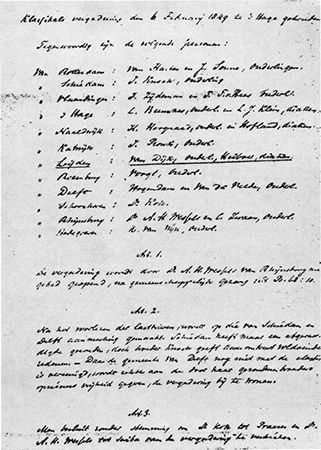 Klassikale vergadering, den 6 Februarij 1849 te 's Hage gehouden
Tegenwoordig zijn de volgende personen:
Van Rotterdam : van Haeften en J. Ouderlingen.
" Schiedam : J. Knoek, ouderling
" Vlaardingen : J. Zijdeman en
" 's Hage : L. ouderl. en L. J. Klein, diaken.
" Naaldwijk : H. Hoogstraat, ouderl. en Hofland, diaken.
" Katwijk : J. ouderl.
" Leijden : van Dijk, ouderl. diaken
" Rozenburg : Voogt, ouderl.
" Delft : Hogendam en Van der Velden, ouderl.
" Schoonhoven : Ds. Kok.
" Rhijnsburg : Ds. A. H. Wessels en L. ouderl.
" Bodegraven : H. van Wijk, ouderl.
Art. 1.
De vergadering wordt door Ds. A. H. Wessels van Rhijnsburg met
gebed geopend, na gemeenschappelijk gezang uit Ps.
Art. 2.
Na het voorlezen der lastbrieven, wordt op die van Schiedam en
Delft aanmerking gemaakt. Schiedam heeft maar een afgevaar-
digde gezonden, doch broeder Knoek geeft daaromtrent voldoende
redenen — Daar de gemeente van Delft nog niet met de classis
is vereenigd, wordt echter aan de door haar gezonden broeders
vrijheid gegeven, de vergadering bij te wonen.
Art. 3.
Men besluit zonder stemming om Ds. Kok tot Praeses en Ds.
A. H. Wessels tot scriba van de vergadering te verkiezen.